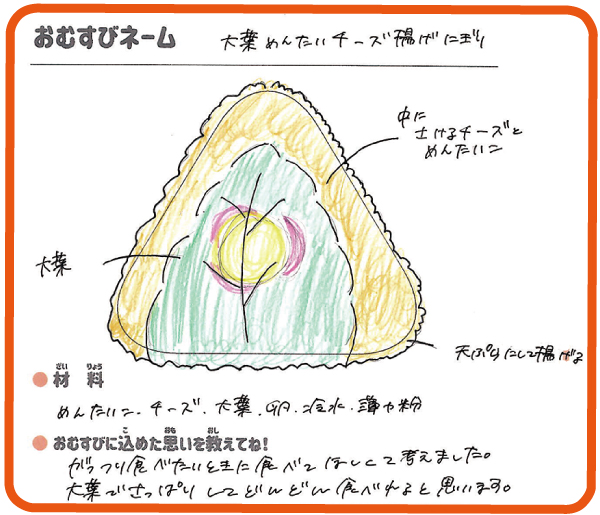 おむすびネーム 大葉めんたいチーズ揚げにぎり
中に
とけるチーズと
めんたいこ
大葉
天ぷらにして揚げる
材料
めんたいこ、チーズ、大葉、卵、冷水、薄力粉
おむすびに込めた思いを教えてね！
がっつり食べたいときに食べてほしくて考えました。
大葉でさっぱりしてどんどん食べれると思います。